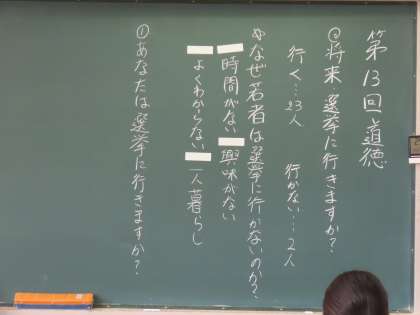 第13回道徳
◎将来、選挙に行きますか?
行く…23人 行かない…2人
なぜ若者は選挙に行かないのか?
時間がない 興味がない
よくわからない 一人暮らし
①あなたは選挙に行きますか?